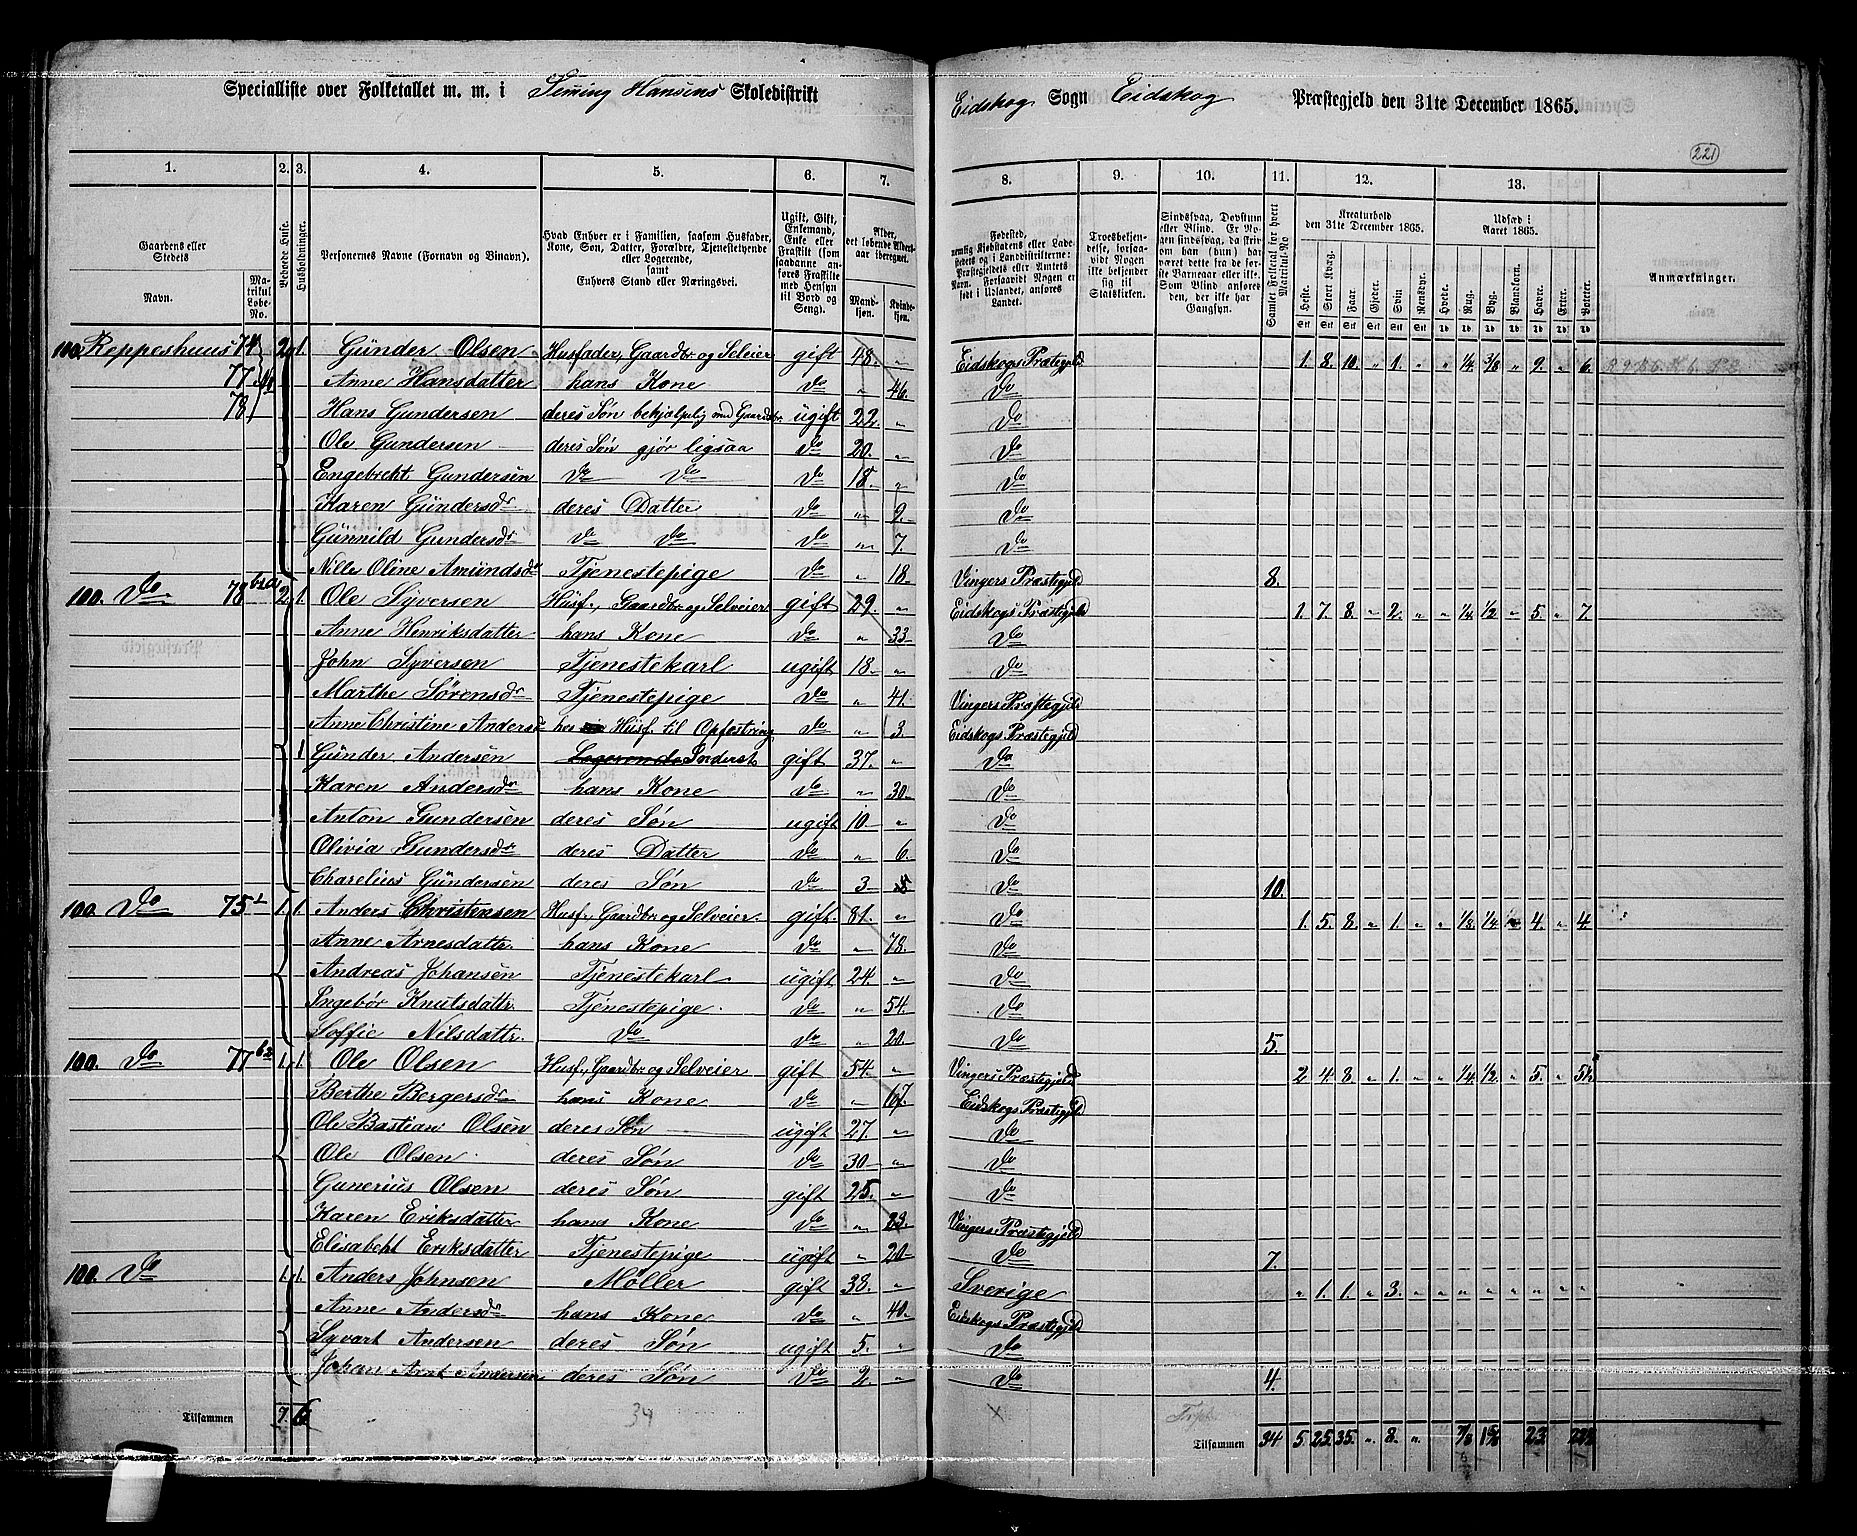 Specialliste over Folketallet m. m. i Hansens Skoledistrikt
Eidskog Sogn Eidskog Præstegjeld den 31te December 1865.
221
1. 2. 3. 4. 5. 6. 7. 8. 9. 10. 11. 12. 13.
Gaardens eller Stedets
Navn.
Matrikul Løbe-No.
Beboede Huse.
Husholdninger.
Personernes Navne (Fornavn og Binavn).
Hvad Enhver er i Familien, saasom Husfader, Kone, Søn, Datter, Forældre, Tjenestetyende eller Logerende, samt Enhvers Stand eller Næringsvei.
Ugift, Gift, Enkemand, Enke eller Fraskilt (som saadanne anføres Fraskilte med Hensyn til Bord og Seng).
Alder, det løbende Alders-aar iberegnet.
Mandkjøn. Kvindekjøn.
Samlet Folketal for hvert Matrikul-No
Kreaturhold den 31te December 1865.
Udsæd i Aaret 1865.
Heste. Stort Kvæg. Faar. Gjeder. Svin. Rensdyr. Hvede. Rug. Byg. Blandkorn. Havre. Erter. Poteter.
Anmærkninger.
100. Reppeshuus 74 2 1. Günder Olsen Husfader, Gaardbr og Selveier gift 48. " Eidskogs Præstegjeld 1. 8. 10. " 1. " " 1/4 3/8 " 9. " 6.
77 Anne Hansdatter hans Kone do " 46. do
78 Hans Gundersen deres Søn behjælpelig med Gaardsbr. ugift 22. " do
Ole Gundersen deres Søn gjør ligsaa do 20. " do
Engebreht Gundersen do do do 18. " do
Karen Gündersdr deres Datter do " 9. do
Günnild Gundersdr do do do " 7. do
Nille Oline Amündsdr Tjenestepige do " 18 Vingers Præstegjeld 8.
100. do 78 2. 1. Ole Syversen Husf., Gaardbr og Selveier gift 29. " Eidskogs Præstegjeld 1. 7. 8. " 2. " " 1/4 1/2 " 5. " 7.
Anne Henriksdatter hans Kone do " 33 do
John Syversen Tjenestekarl ugift 18 " do
Marthe Sørensdr Tjenestepige do " 41. Vingers Præstegjeld
Anne Christine Andersd hos Husf. til Opfostring do " 3. Eidskogs Præstegjeld
1 Günder Andersen Logerende Inderst gift 37. " do
Karen Andersdr hans Kone do " 30. do
Anton Gundersen deres Søn ugift 10 " do
Olivia Gundersdr deres Datter do " 6. do
Charelius Gündersen deres Søn do 3 do 10.
100. do 75 1. 1. Anders Christensen Husf., Gaardbr og Selveier. gift. 81. " do 1. 5. 8. " 1. " " 1/8 1/4 " 4. " 4.
Anne Arnesdattr. hans Kone do " 78. do
Andreas Johansen Tjenestekarl ugift 24. " do
Ingebør Knutsdattr. Tjenestepige. do " 54. do
Soffie Nilsdattr. do do " 20. do 5.
100. do 77 b2 1. 1. Ole Olsen Husf., Gaardbr og Selveier gift 54. " Vingers Præstegjeld 2 4. 8. " 1. " " 1/4 1/2 " 5. " 5½
Berthe Bergersdr hans Kone do " 67. Eidskogs Præstegjeld
Ole Bastian Olsen deres Søn ugift 27. " do
Ole Olsen deres Søn do 30 " do
Gunerius Olsen deres Søn gift 25. " do
Karen Eriksdatter hans Kone do " 23. Vingers Præstegjeld
Elisabeht Eriksdatter Tjenestepige ugift " 20 do 7.
100. do 1. 1. Anders Johnsen Møller gift 38. " Sverige " 1. 1. " 3. " " " " " " " "
Anne Andersdr hans Kone do " 40. Eidskogs Præstegjeld
Syvart Andersen deres Søn ugift 5. " do
Johan Arnt Andersen deres Søn do 2. " do 4.
Tilsammen 7. 6 34
Tilsammen 34 5. 25. 35. " 8. " 23.